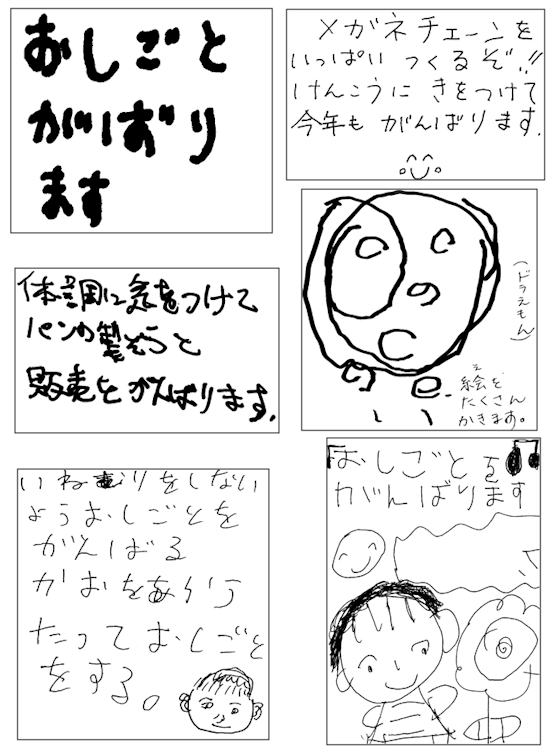 おしごと
がばり
ます
メガネチェーンを
いっぱい つくるぞ!!
けんこうに きをつけて
今年も がんばります.
体調に気をつけて
パンの製ぞうと
販売とがんばります.
(ドラえもん)
え
絵を、
たくさん
かきます。
いねむりをしない
ようおしごとを
がんばる
かおをあらう
たっておしごと
をする。
おしごとを
がんばります